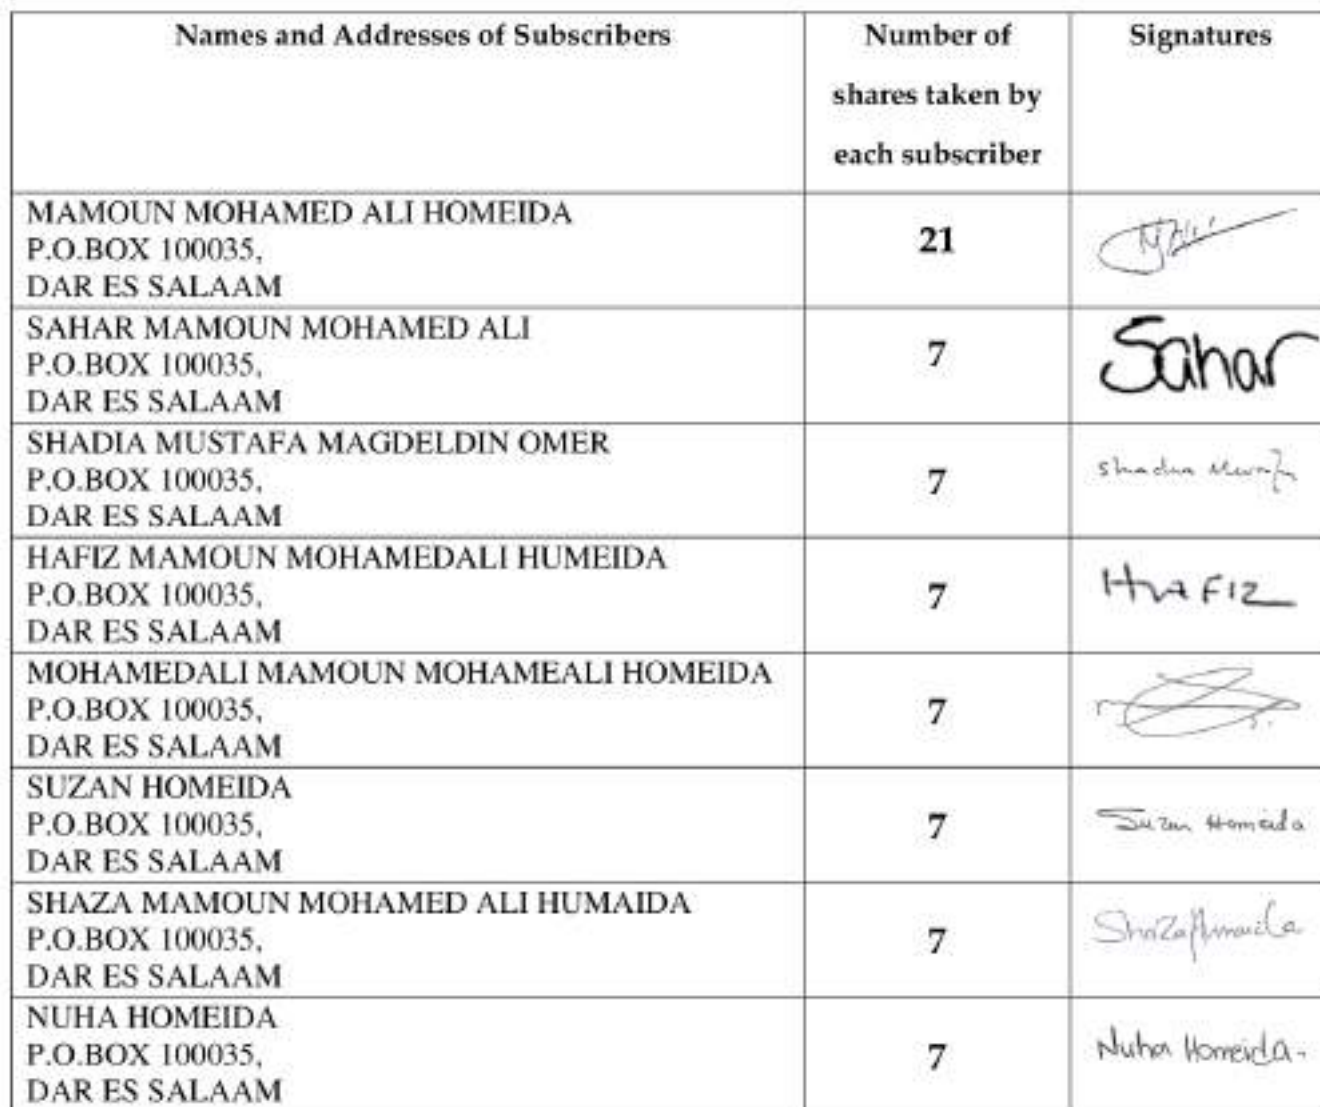 Names and Addresses of Subscribers
Number of
shares taken by
each subscriber
Signatures
MAMOUN MOHAMED ALI HOMEIDA
P.O.BOX 100035,
DAR ES SALAAM
21
SAHAR MAMOUN MOHAMED ALI
P.O.BOX 100035,
DAR ES SALAAM
7
Sahar
SHADIA MUSTAFA MAGDELDIN OMER
P.O.BOX 100035,
DAR ES SALAAM
7
Shadia
HAFIZ MAMOUN MOHAMEDALI HUMEIDA
P.O.BOX 100035,
DAR ES SALAAM
7
HAFIZ
MOHAMEDALI MAMOUN MOHAMEALI HOMEIDA
P.O.BOX 100035,
DAR ES SALAAM
7
SUZAN HOMEIDA
P.O.BOX 100035,
DAR ES SALAAM
7
Suzan Homeida
SHAZA MAMOUN MOHAMED ALI HUMAIDA
P.O.BOX 100035,
DAR ES SALAAM
7
Shaza Humaida
NUHA HOMEIDA
P.O.BOX 100035,
DAR ES SALAAM
7
Nuha Homeida.